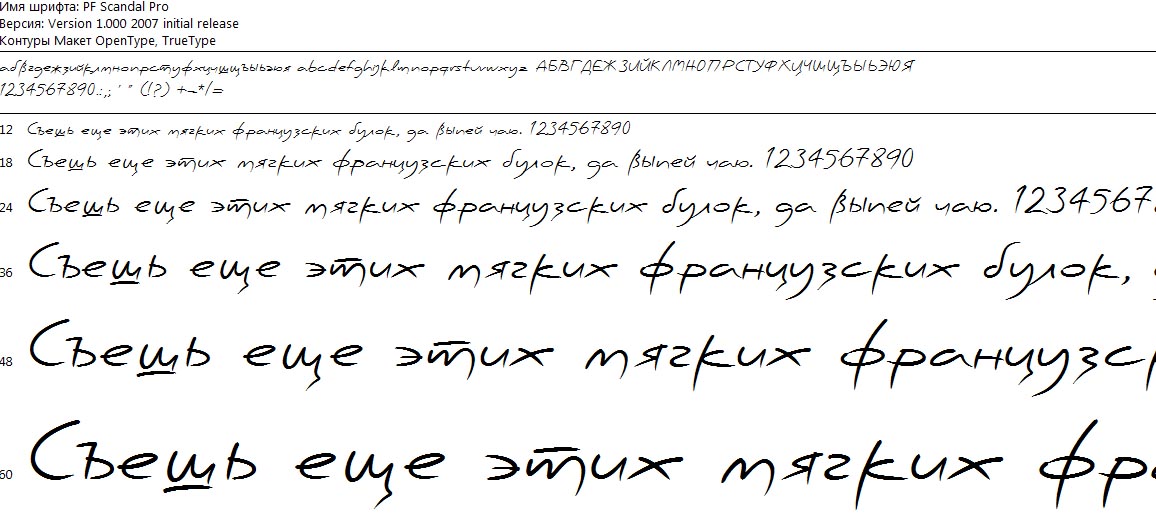 Имя шрифта: PF Scandal Pro
Версия: Version 1.000 2007 initial release
Контуры Макет OpenType, TrueType
абвгдежзийклмнопрстуфхцчшщъыьэюя abcdefghijklmnopqrstuvwxyz АБВГДЕЖЗИЙКЛМНОПРСТУФХЦЧШЩЪЫЬЭЮЯ
1234567890.:,; ' " (!?) +-*/=
12 Съешь еще этих мягких французских булок, да выпей чаю. 1234567890
18 Съешь еще этих мягких французских булок, да выпей чаю. 1234567890
24 Съешь еще этих мягких французских булок, да выпей чаю. 1234567
36 Съешь еще этих мягких французских булок,
48 Съешь еще этих мягких французс
60 Съешь еще этих мягких фр